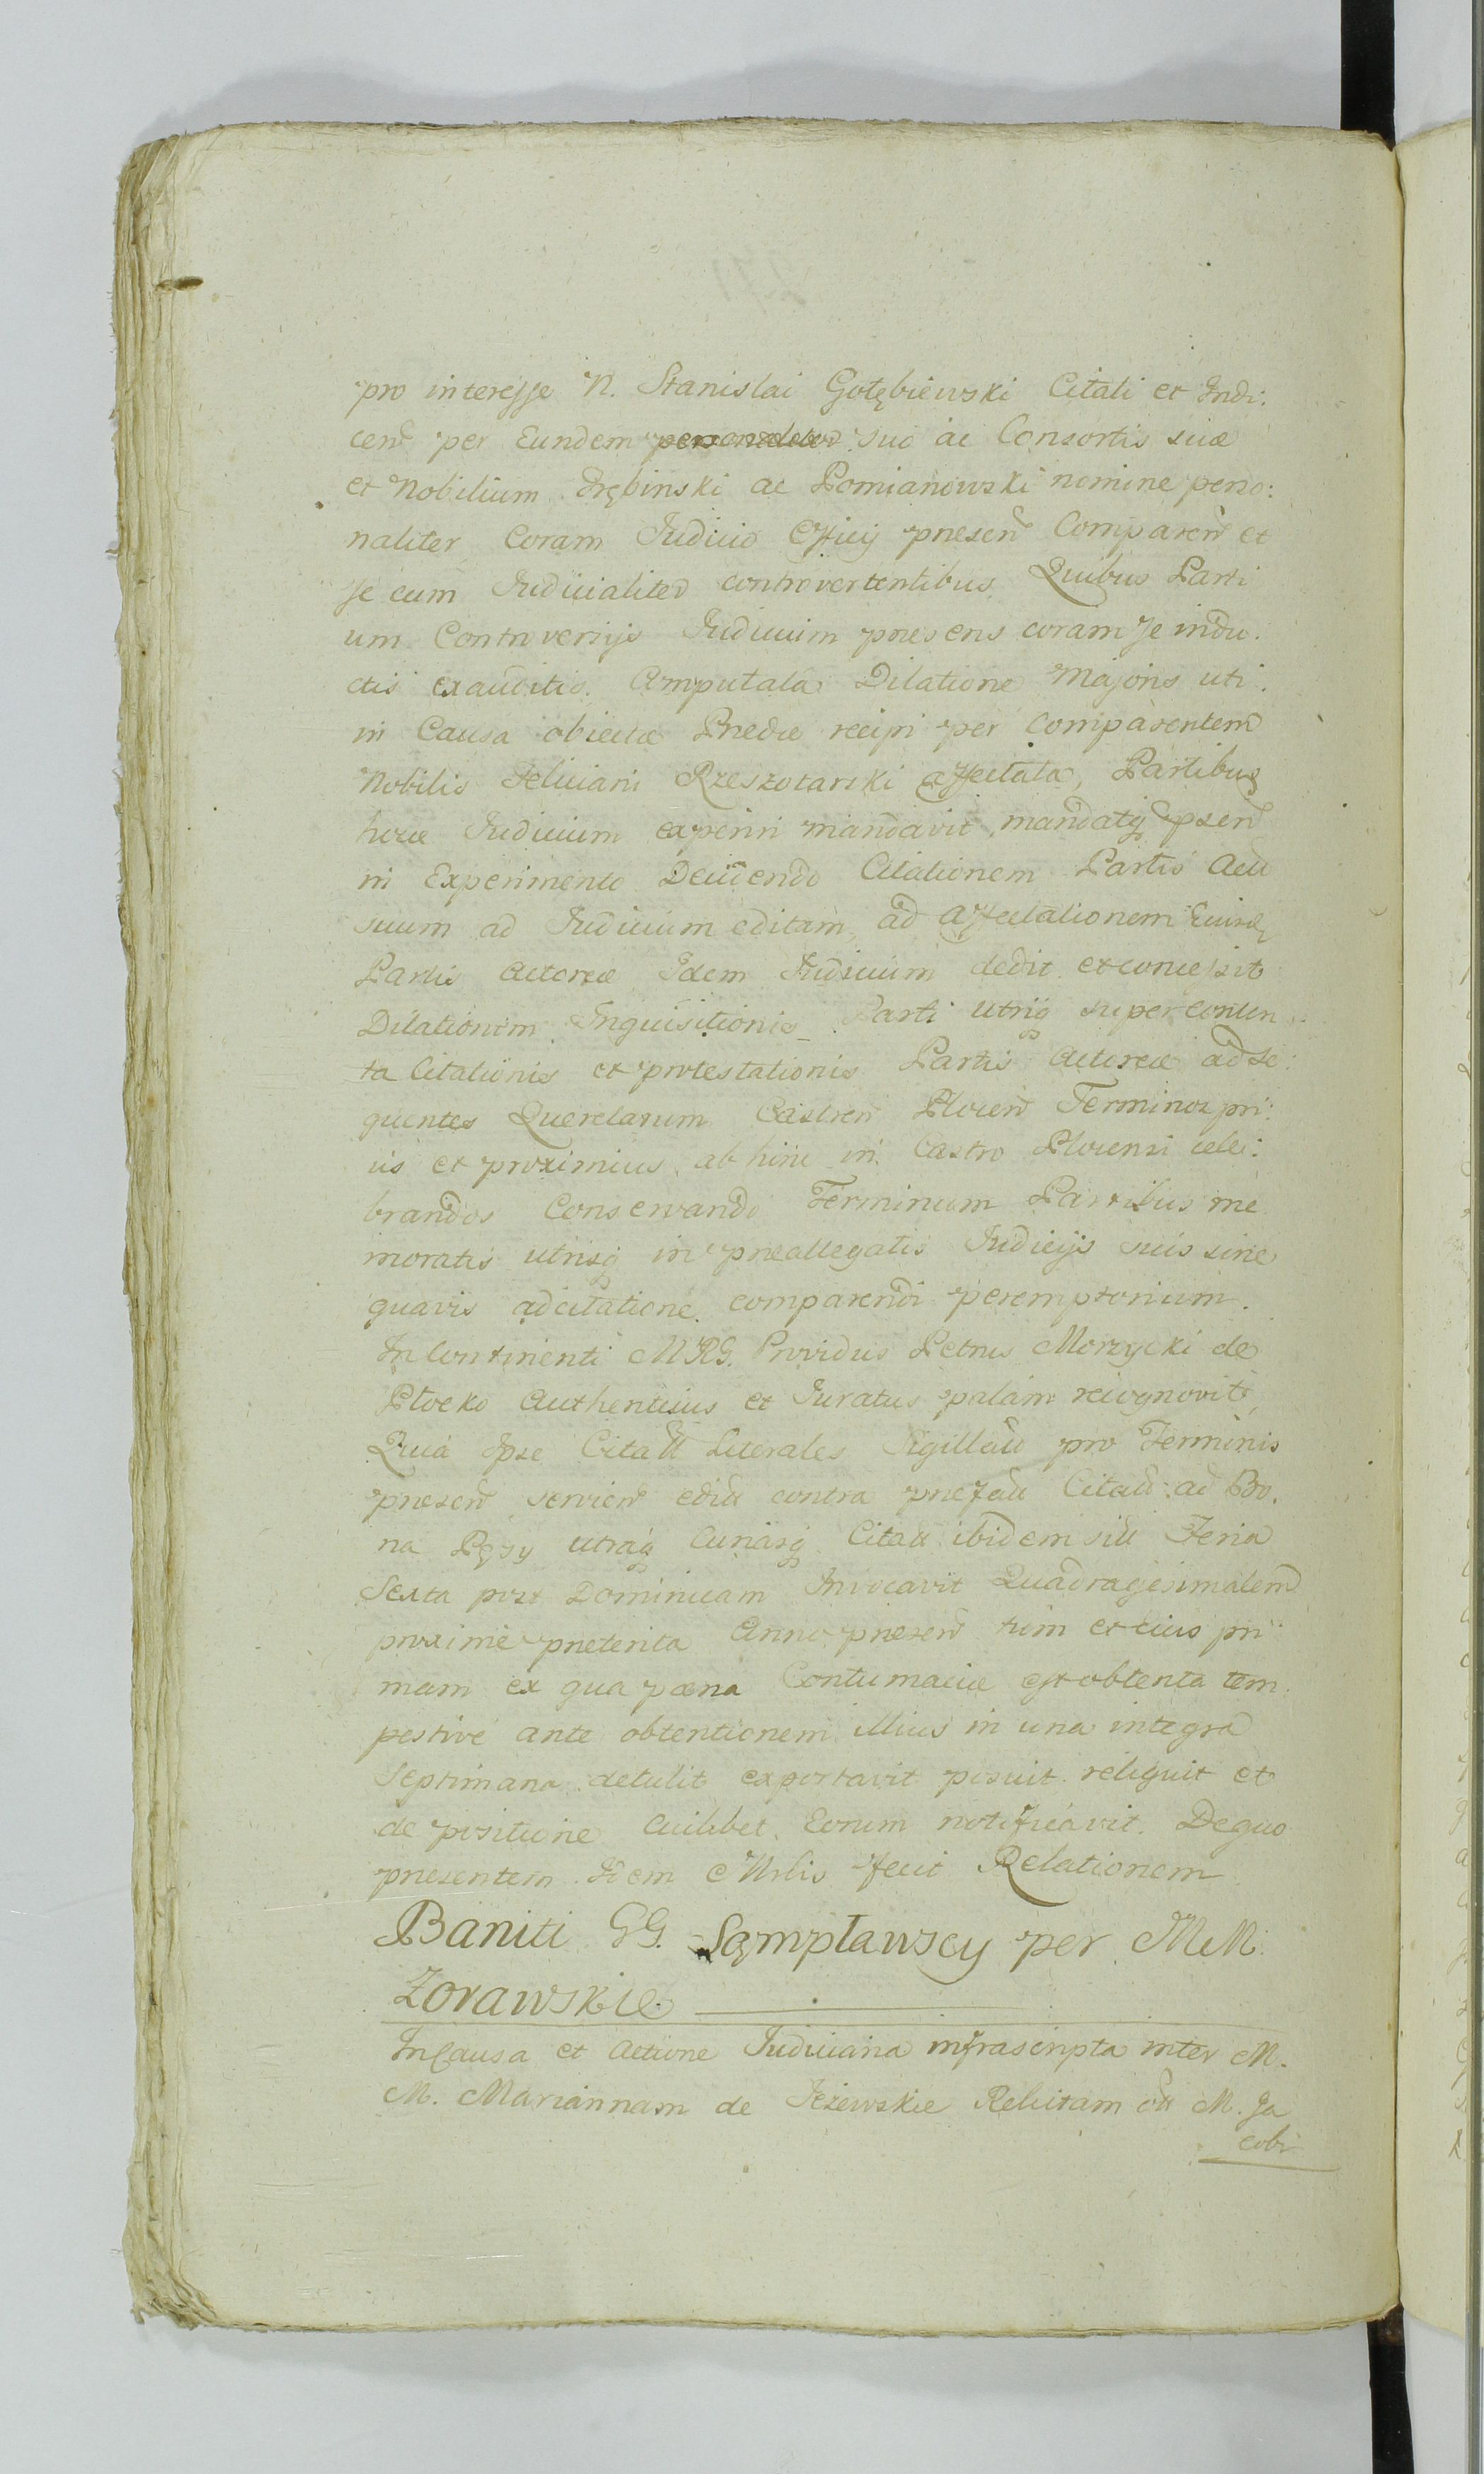 pro interesse N. Stanislai Gołębiewski Citati et Indi:
cen per Eundem suo ac Consortis suæ
et Nobilium Trębinski ac Pomianowski nomine perso:
naliter Coram Judicio Officij presen Comparen et
se cum Judicialiter controvertentibus. Quibus Parti
um Controversijs Judicium presens coram se indu:
ctis exauditis. Amputata Dilatione Majoris uti
in Causa obiectæ Predæ recipi per Comparentem
Nobilis Feliciani Rzeszotarski affectata, Partibus
hocce Judicium experiri mandavit, mandatq psen
in Experimento Decidendo Citationem Partis Acto
suum ad Judicium editam, ad Affectationem Eiusd
Partis Actoreæ Idem Judicium dedit et concessit
Dilationem Inquisitionis Parti utriq super conten
ta Citationis et protestationis Partis Actoreæ ad Se:
quentes Querelarum Castren Plocen Terminos pri:
us et proximius ab hinc in Castro Plocensi cele:
brandos Conservando Terminum Partibus me
moratis utrisq in preallegatis Judicijs suis sine
quavis adcitatione comparendi peremptorium.
In Continenti MRG. Providus Petrus Morzycki de
Płocko Authenticus et Juratus palam recognovit,
Quia Ipse Citatt Literales Sigillatt pro Terminis
presen servien editt contra prefatt Citatt: ad Bo:
na Pęsy utraq Curiasq Citatt ibidem sitt Feria
Sexta post Dominicam Invocavit Quadragesimalem
proxime preterita Anno presen tum et eius pri
mam ex qua pœna Contumaciæ est obtenta tem
pestive ante obtentionem illius in una integra
Septimana detulit exportavit posuit reliquit et
de positione cuilibet Eorum notificavit. De quo
presentem Idem Mrlis fecit Relationem
Baniti GG. Sąmpławscy per MM.
Zorawskie.
In Causa et Actione Judiciaria infrascripta inter M.
M. Mariannam de Jeżewskie Relictam olł M. Ja
cobi